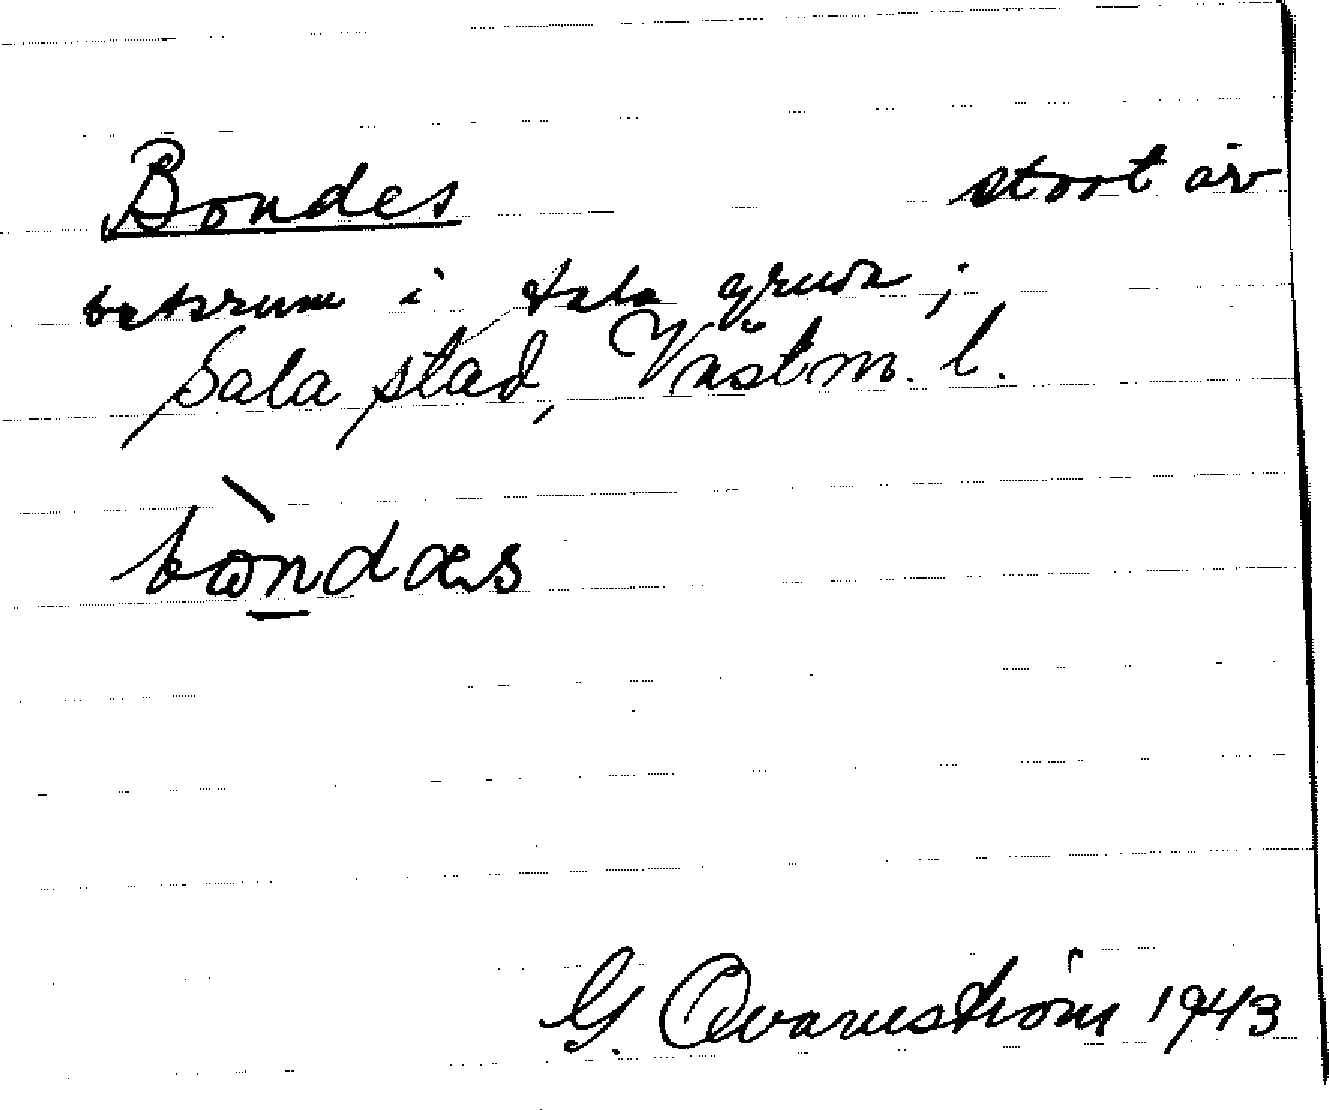 Bondes stort ar
betsrum i Sala gruva;
Sala stad, Västm. l.
bòndæs
G. Qvarnström 1943